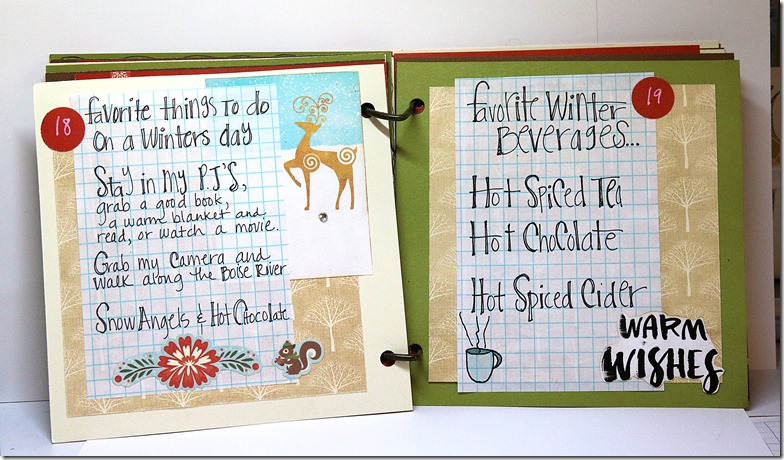 18
favorite things To do
On a Winters day
Stay in my P.J'S,
grab a good book,
a warm blanket and
read, or watch a movie.
Grab my Camera and
walk along the Boise River
Snow Angels & Hot Chocolate
19
favorite Winter
Beverages...
Hot Spiced Tea
Hot Chocolate
Hot Spiced Cider
WARM
WISHES